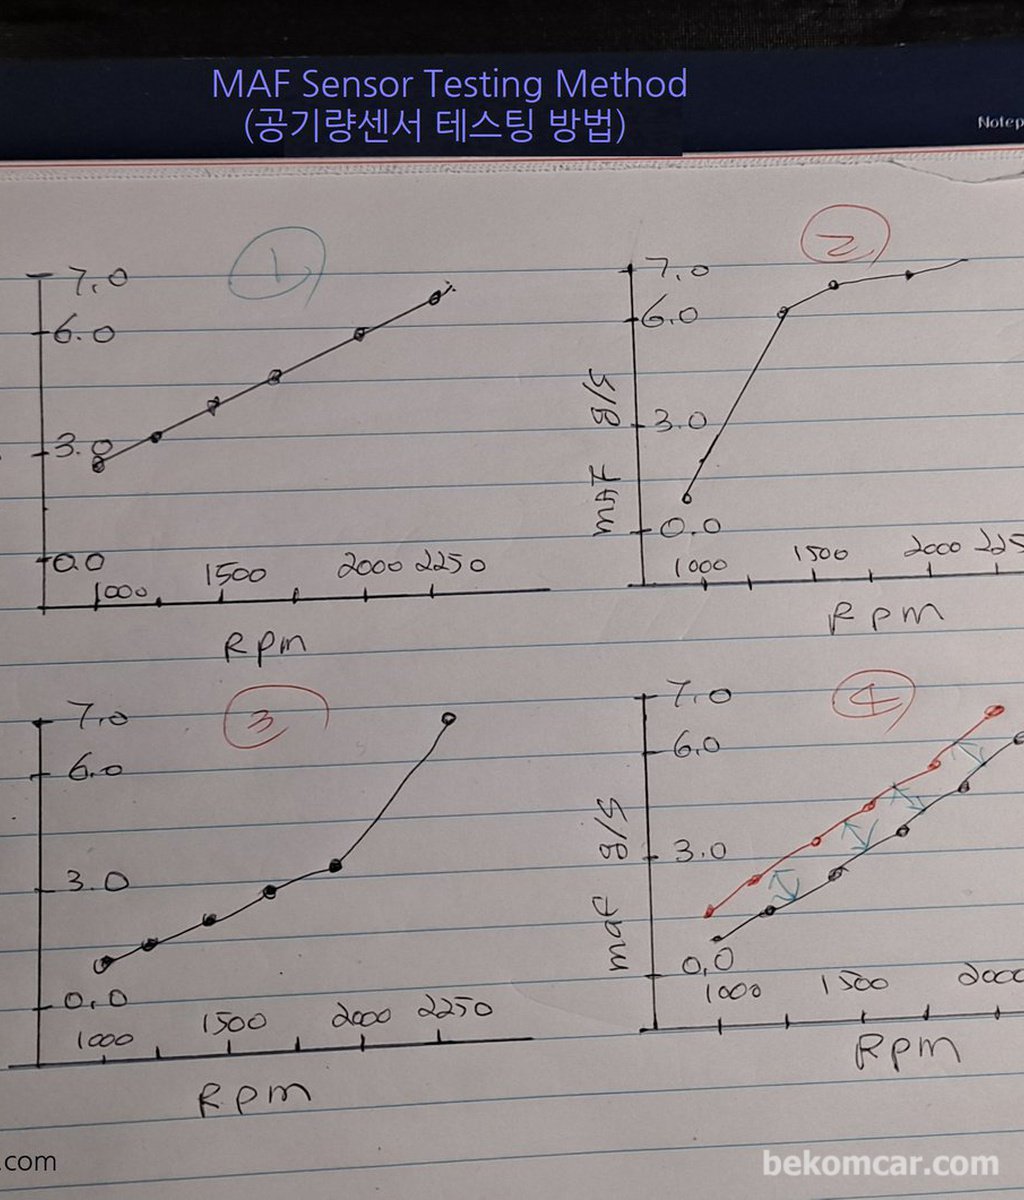 MAF Sensor Testing Method
(공기량센서 테스팅 방법)
Notep
1
7.0
6.0
3.0
0.0
1000 1500 2000 2250
Rpm
2
7.0
6.0
3.0
0.0
maf g/s
1000 1500 2000 225
Rpm
3
7.0
6.0
3.0
0.0
1000 1500 2000 2250
Rpm
4
7.0
6.0
3.0
0.0
maf g/s
1000 1500 2000
Rpm
.com
bekomcar.com